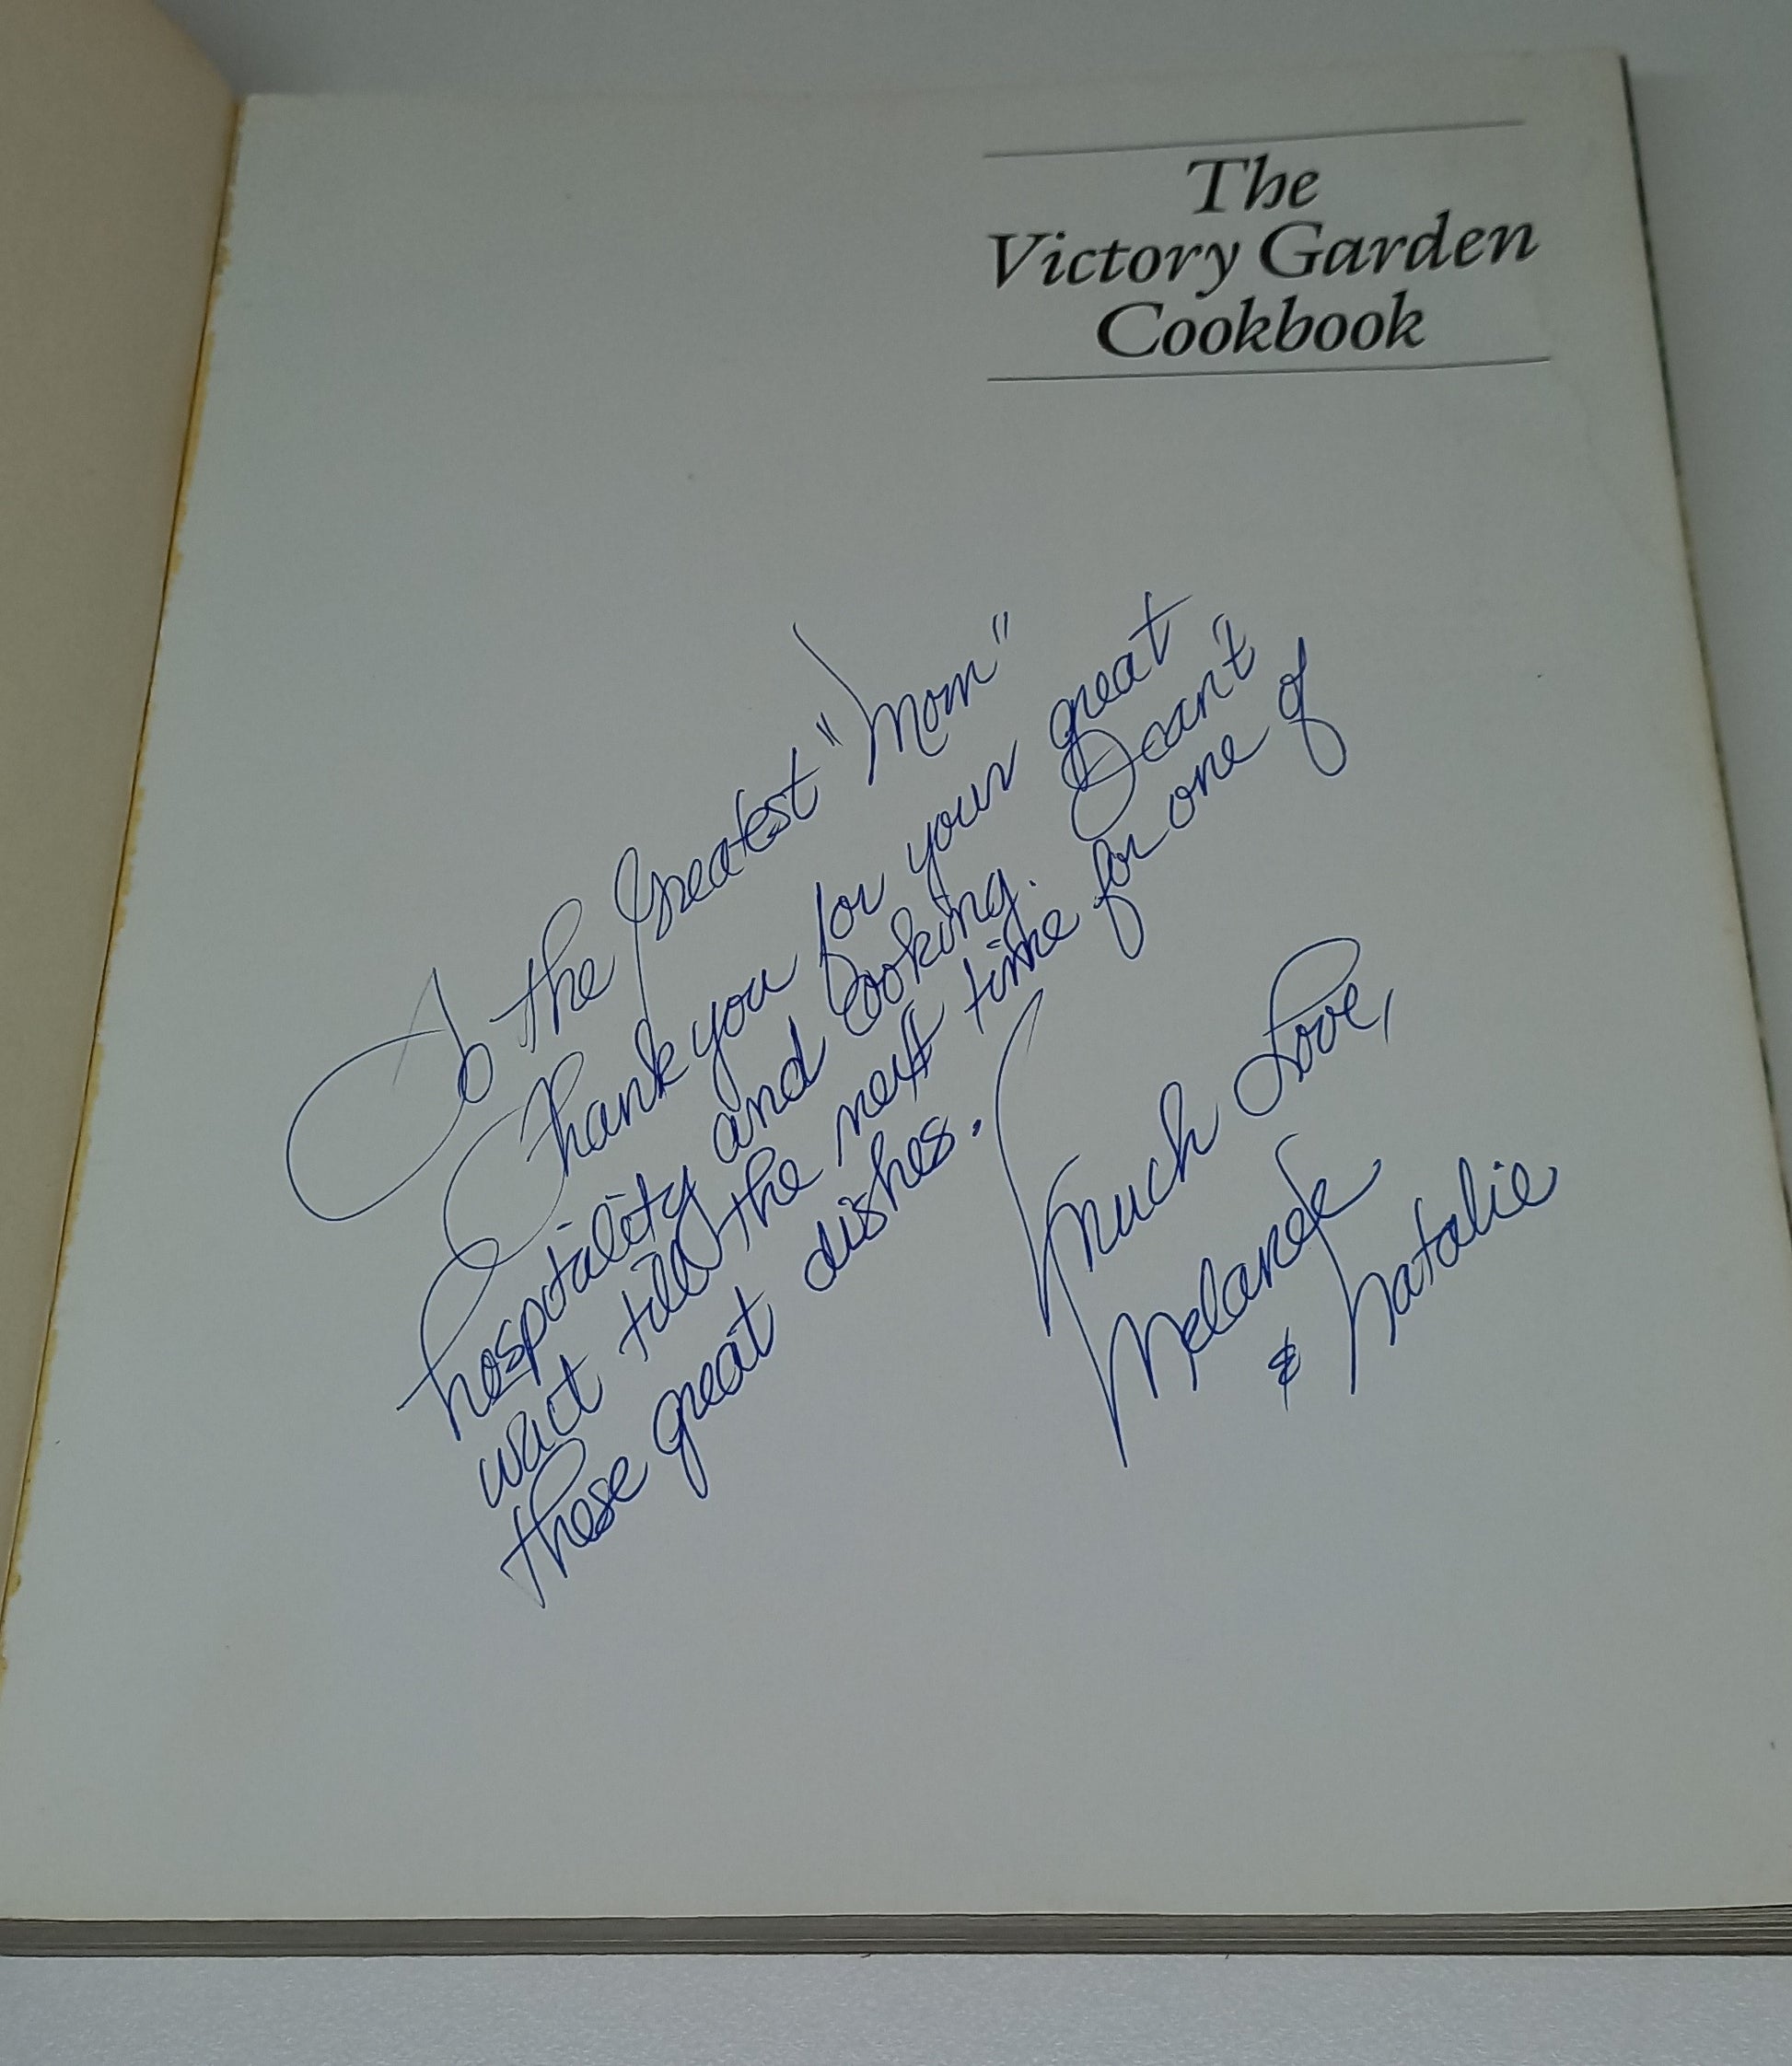 The
Victory Garden
Cookbook
To the Greatest "Mom"
Thank you for your great
hospitality and cooking. I can't
wait till the next time for one of
these great dishes.
Much Love,
& Natalie